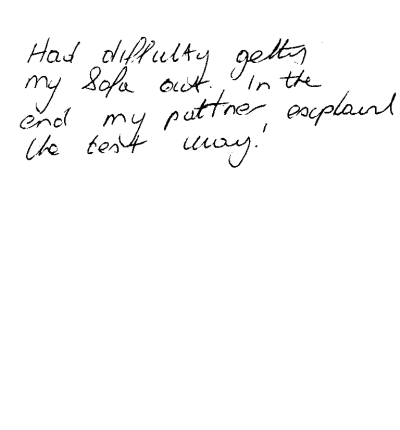 Had diffulty getting
my Sofa out. In the
end my parttner explained
the best way!